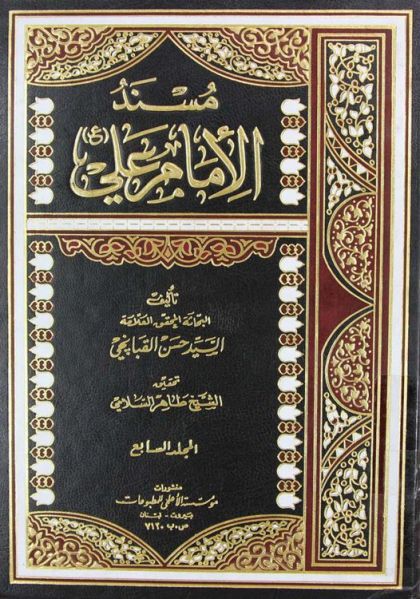 مُسْنَدُ
الإمام علي (ع)
تأليف
البحاثة المحقق العلامة
السيد حسن القبانجي
تحقيق
الشيخ طاهر السلامي
المجلد السابع
منشورات
مؤسسة الأعلمي للمطبوعات
بيروت - لبنان
ص.ب ٧١٢٠